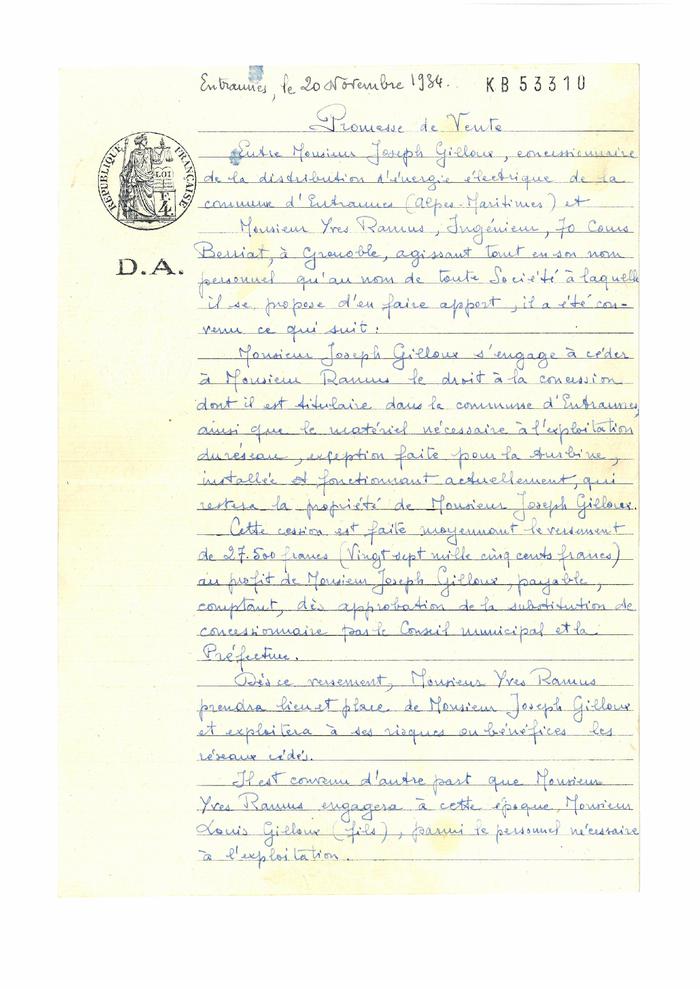 Entraunes, le 20 Novembre 1934.
KB53310
Promesse de Vente
RÉPUBLIQUE FRANÇAISE
LOI
F.
4
D.A.
Entre Monsieur Joseph Gilloux, concessionnaire
de la distribution d'énergie électrique de la
commune d'Entraunes (Alpes-Maritimes) et
Monsieur Yves Ramus, Ingénieur, 70 Cours
Berriat, à Grenoble, agissant tant en son nom
personnel qu'au nom de toute Société à laquelle
il se propose d'en faire apport, il a été con-
venu ce qui suit :
Monsieur Joseph Gilloux s'engage à céder
à Monsieur Ramus le droit à la concession
dont il est titulaire dans la commune d'Entraunes,
ainsi que le matériel nécessaire à l'exploitation
du réseau, exception faite pour la turbine,
installée et fonctionnant actuellement, qui
restera la propriété de Monsieur Joseph Gilloux.
Cette cession est faite moyennant le versement
de 27.500 francs (Vingt sept mille cinq cents francs)
au profit de Monsieur Joseph Gilloux, payable,
comptant, dès approbation de la substitution de
concessionnaire par le Conseil municipal et la
Préfecture.
Dès ce versement, Monsieur Yves Ramus
prendra lieu et place de Monsieur Joseph Gilloux
et exploitera à ses risques ou bénéfices les
réseaux cédés.
Il est convenu d'autre part que Monsieur
Yves Ramus engagera à cette époque, Monsieur
Louis Gilloux (fils), parmi le personnel nécessaire
à l'exploitation.